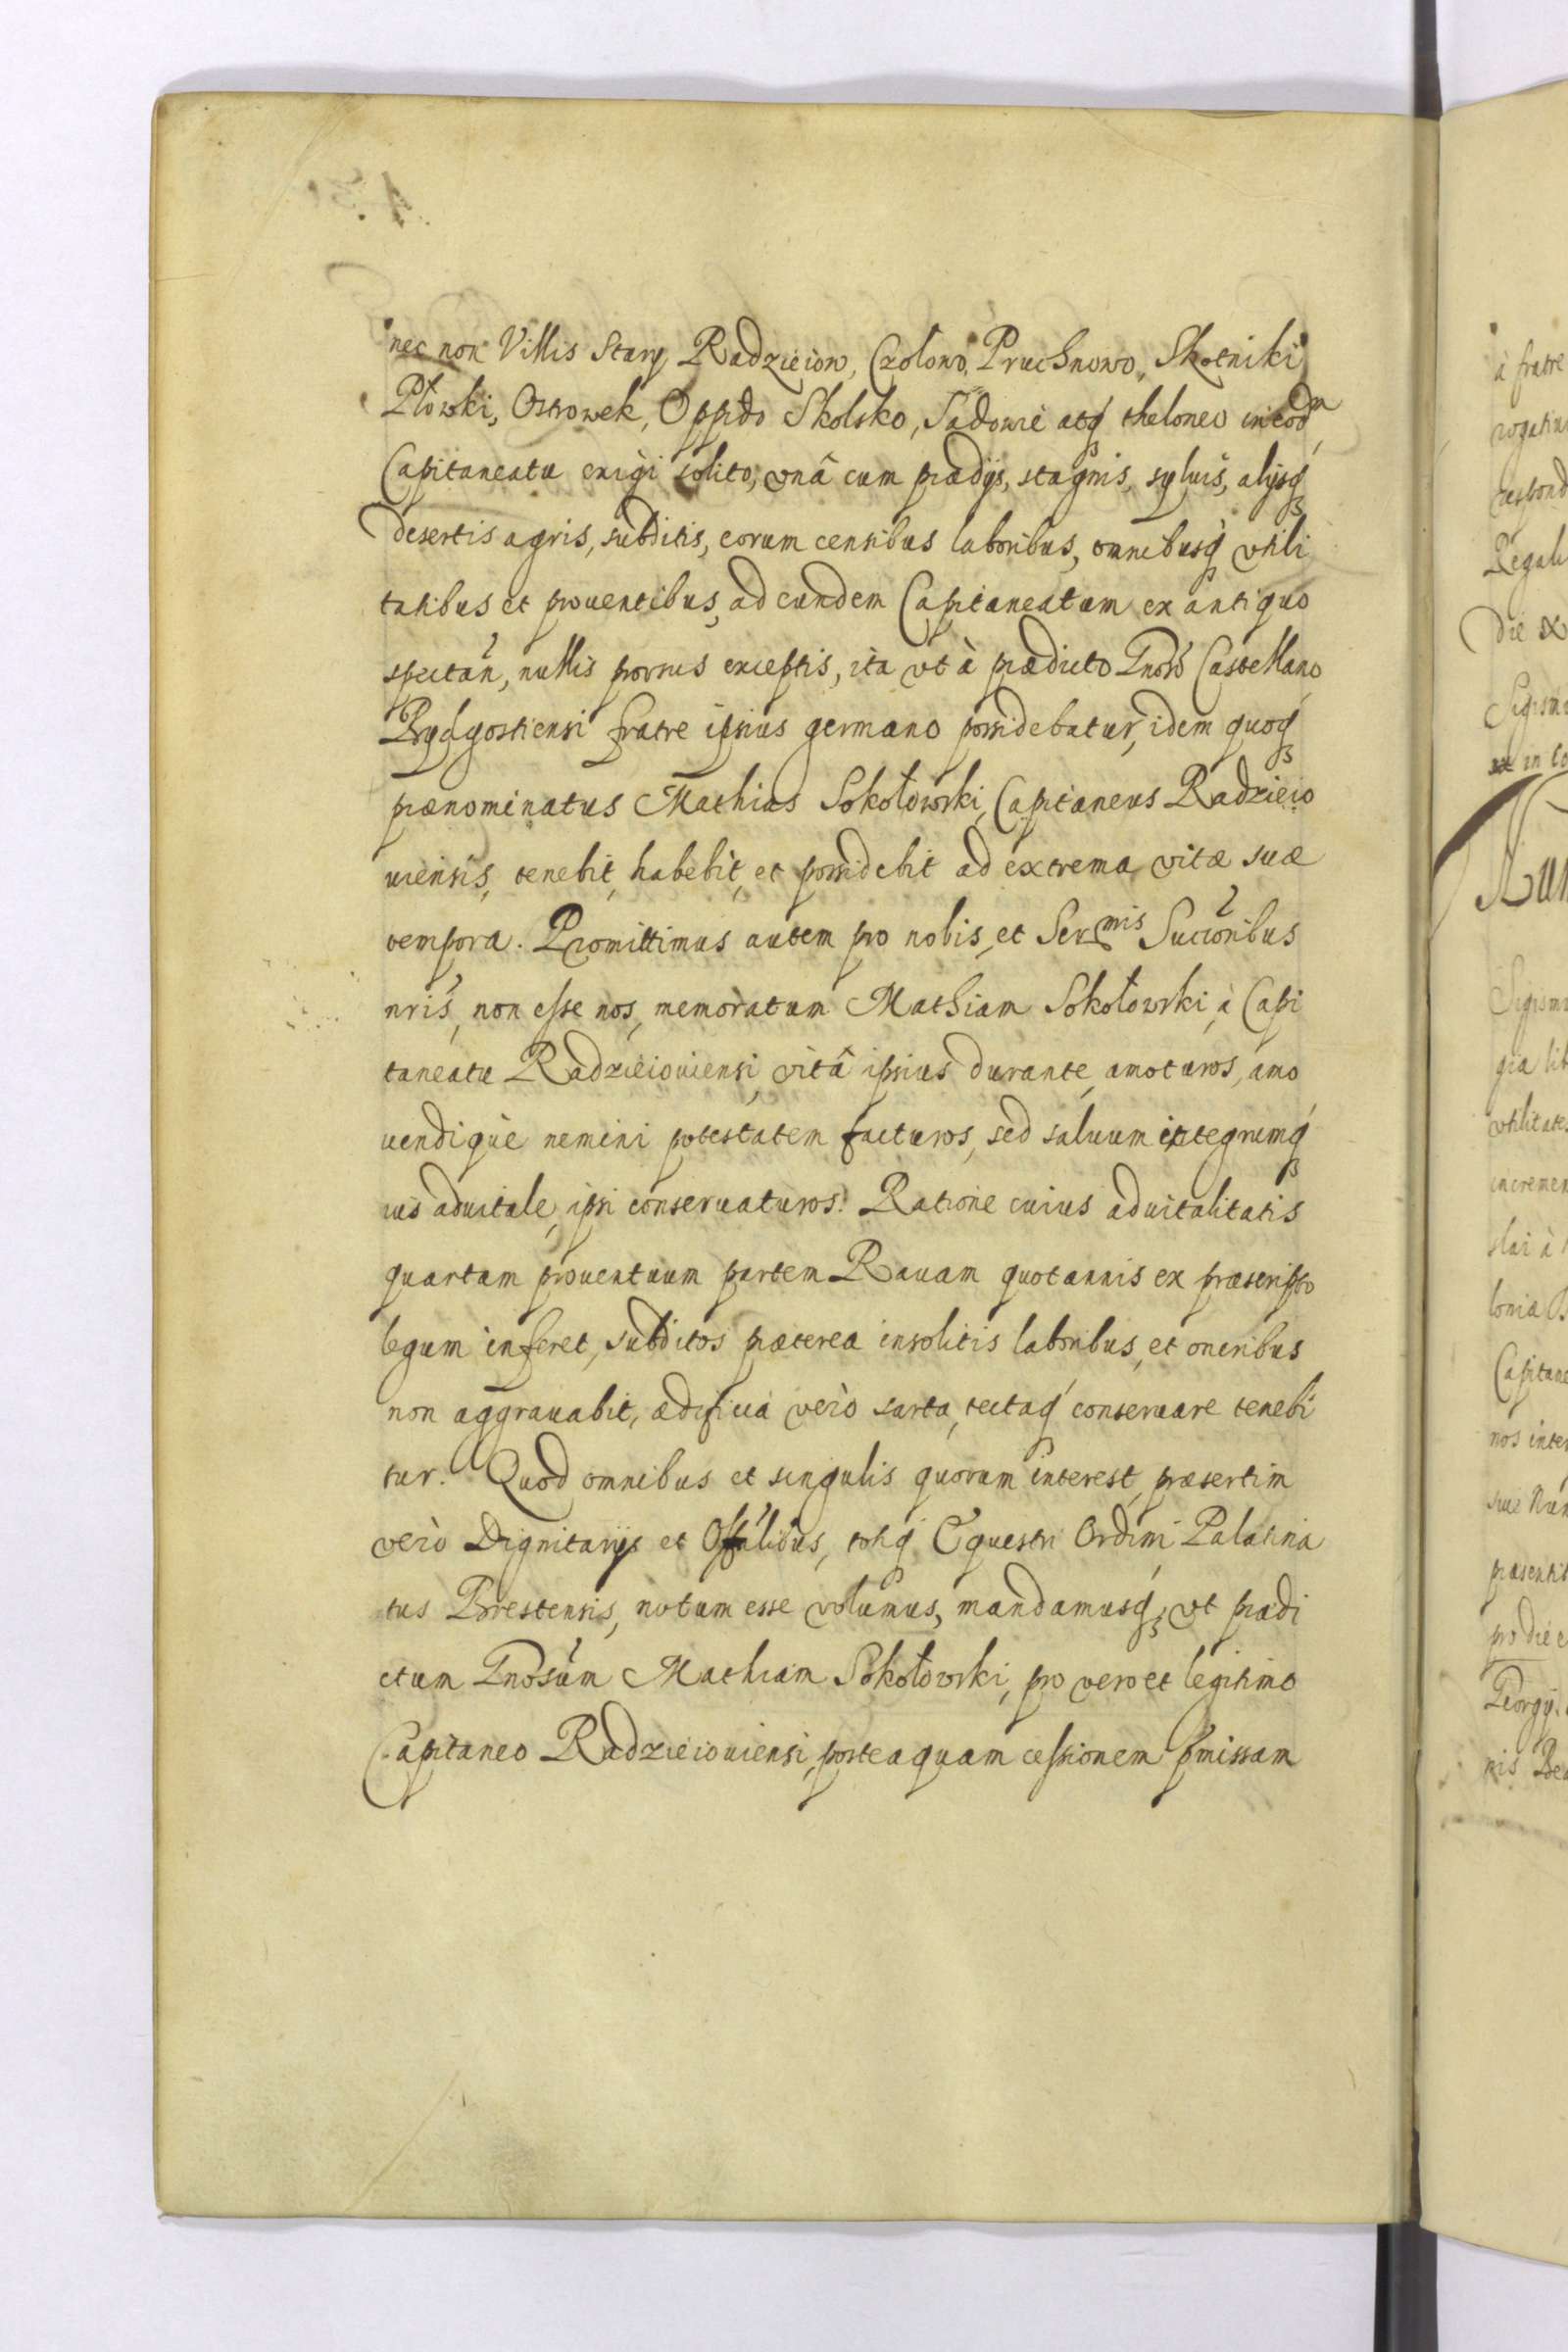 nec non Villis Stary Radzieiow, Czolowo, Pruchnowo, Skotniki
Płowki, Ostrowek, Oppido Skolsko, Sadowie atq́ theloneo in eodm
Capitaneatu exigi solito, vnâ cum prædijs, stagnis, syluis, alijsq́
desertis agris, subditis, eorum censibus laboribus, omnibusq́ vtili
tatibus et prouentibus, ad eundem Capitaneatum ex antiquo
spectan̄, nullis prorsus exceptis, ita vt à prædicto Gnoso Castellano
Bydgostiensi fratre ipsius germano possidebatur, idem quoq́
prænominatus Mathias Sokołowski, Capitaneus Radzieio
uiensis, tenebit, habebit, et possidebit ad extrema vitæ suæ
tempora. Promittimus autem pro nobis, et Sermis Succoribus
nris, non esse nos, memoratum Mathiam Sokołowski, à Capi
taneatu Radzieiouiensi, vitâ ipsius durante, amoturos, amo
uendiquè nemini potestatem facturos, sed saluum integrumq́
ius aduitale, ipsi conseruaturos. Ratione cuius aduitalitatis
quartam prouentuum partem Rauam quotannis ex præscripto
legum inferet, subditos præterea insolitis laboribus, et oneribus
non aggrauabit, ædificia verò sarta, tectaq́ conseruare tenebi
tur. Quod omnibus et singulis quorum interest, præsertim
verò Dignitarijs et Offalibus, totiq́ Equestri Ordini Palatina
tus Brestensis, notum esse volumus, mandamusq́, vt prædi
ctum Gnosum Mathiam Sokołowski, pro vero et legitimo
Capitaneo Radzieiouiensi, posteaquam cessionem pmissam
à fratre
Regali
Die
Sigism
utilitate
incremen
Capitane
nos inter
præsentib
pro die
Georgij
nis